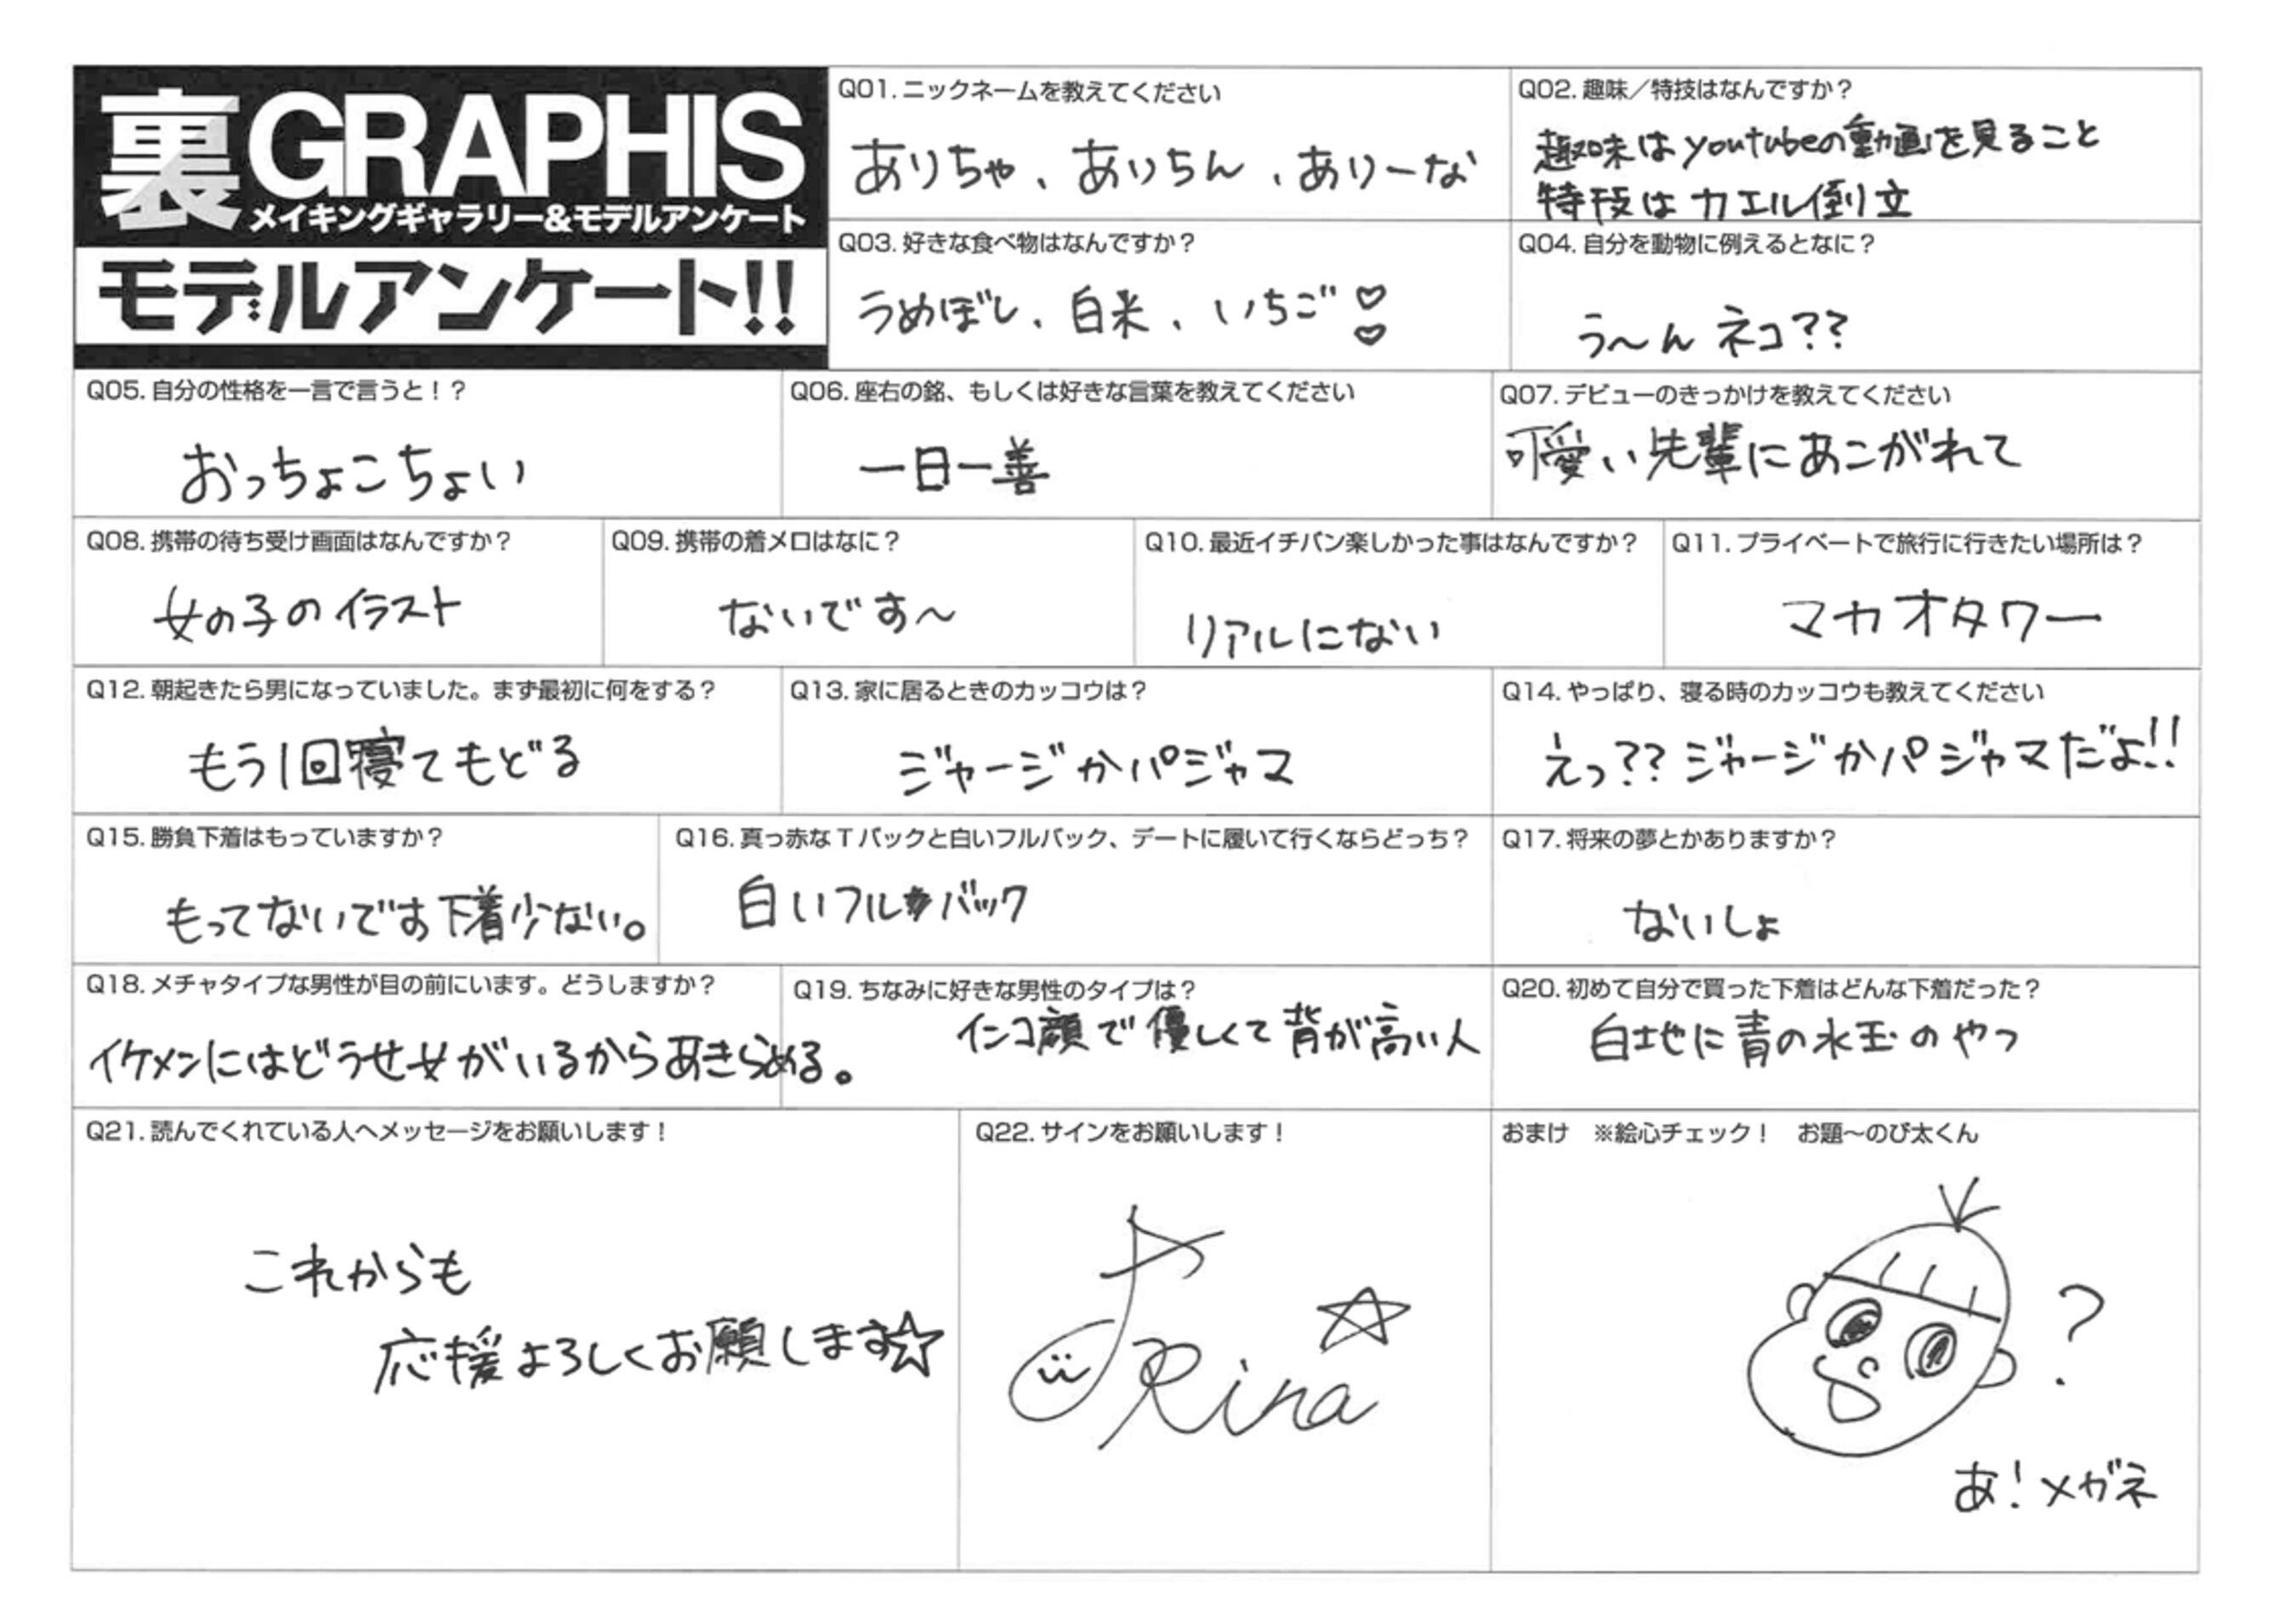 裏GRAPHIS
メイキングギャラリー&モデルアンケート
モデルアンケート!!
Q01. ニックネームを教えてください
ありちゃ、ありちん、ありーな
Q02. 趣味／特技はなんですか？
趣味はyoutubeの動画を見ること
特技はカエル倒立
Q03. 好きな食べ物はなんですか？
うめぼし、白米、いちご♡♡
Q04. 自分を動物に例えるとなに？
う〜んネコ??
Q05. 自分の性格を一言で言うと！？
おっちょこちょい
Q06. 座右の銘、もしくは好きな言葉を教えてください
一日一善
Q07. デビューのきっかけを教えてください
可愛い先輩にあこがれて
Q08. 携帯の待ち受け画面はなんですか？
女の子のイラスト
Q09. 携帯の着メロはなに？
ないです〜
Q10. 最近イチバン楽しかった事はなんですか？
リアルにない
Q11. プライベートで旅行に行きたい場所は？
マカオタワー
Q12. 朝起きたら男になっていました。まず最初に何をする？
もう1回寝てもどる
Q13. 家に居るときのカッコウは？
ジャージかパジャマ
Q14. やっぱり、寝る時のカッコウも教えてください
えっ??ジャージかパジャマだよ!!
Q15. 勝負下着はもっていますか？
もってないです下着少ない。
Q16. 真っ赤なTバックと白いフルバック、デートに履いて行くならどっち？
白いフルバック
Q17. 将来の夢とかありますか？
ないしょ
Q18. メチャタイプな男性が目の前にいます。どうしますか？
イケメンにはどうせ女がいるからあきらめる。
Q19. ちなみに好きな男性のタイプは？
インコ顔で優しくて背が高い人
Q20. 初めて自分で買った下着はどんな下着だった？
白地に青の水玉のやつ
Q21. 読んでくれている人へメッセージをお願いします！
これからも
応援よろしくお願します☆
Q22. サインをお願いします！
Arina☆
おまけ　※絵心チェック！　お題〜のび太くん
?
あ!メガネ